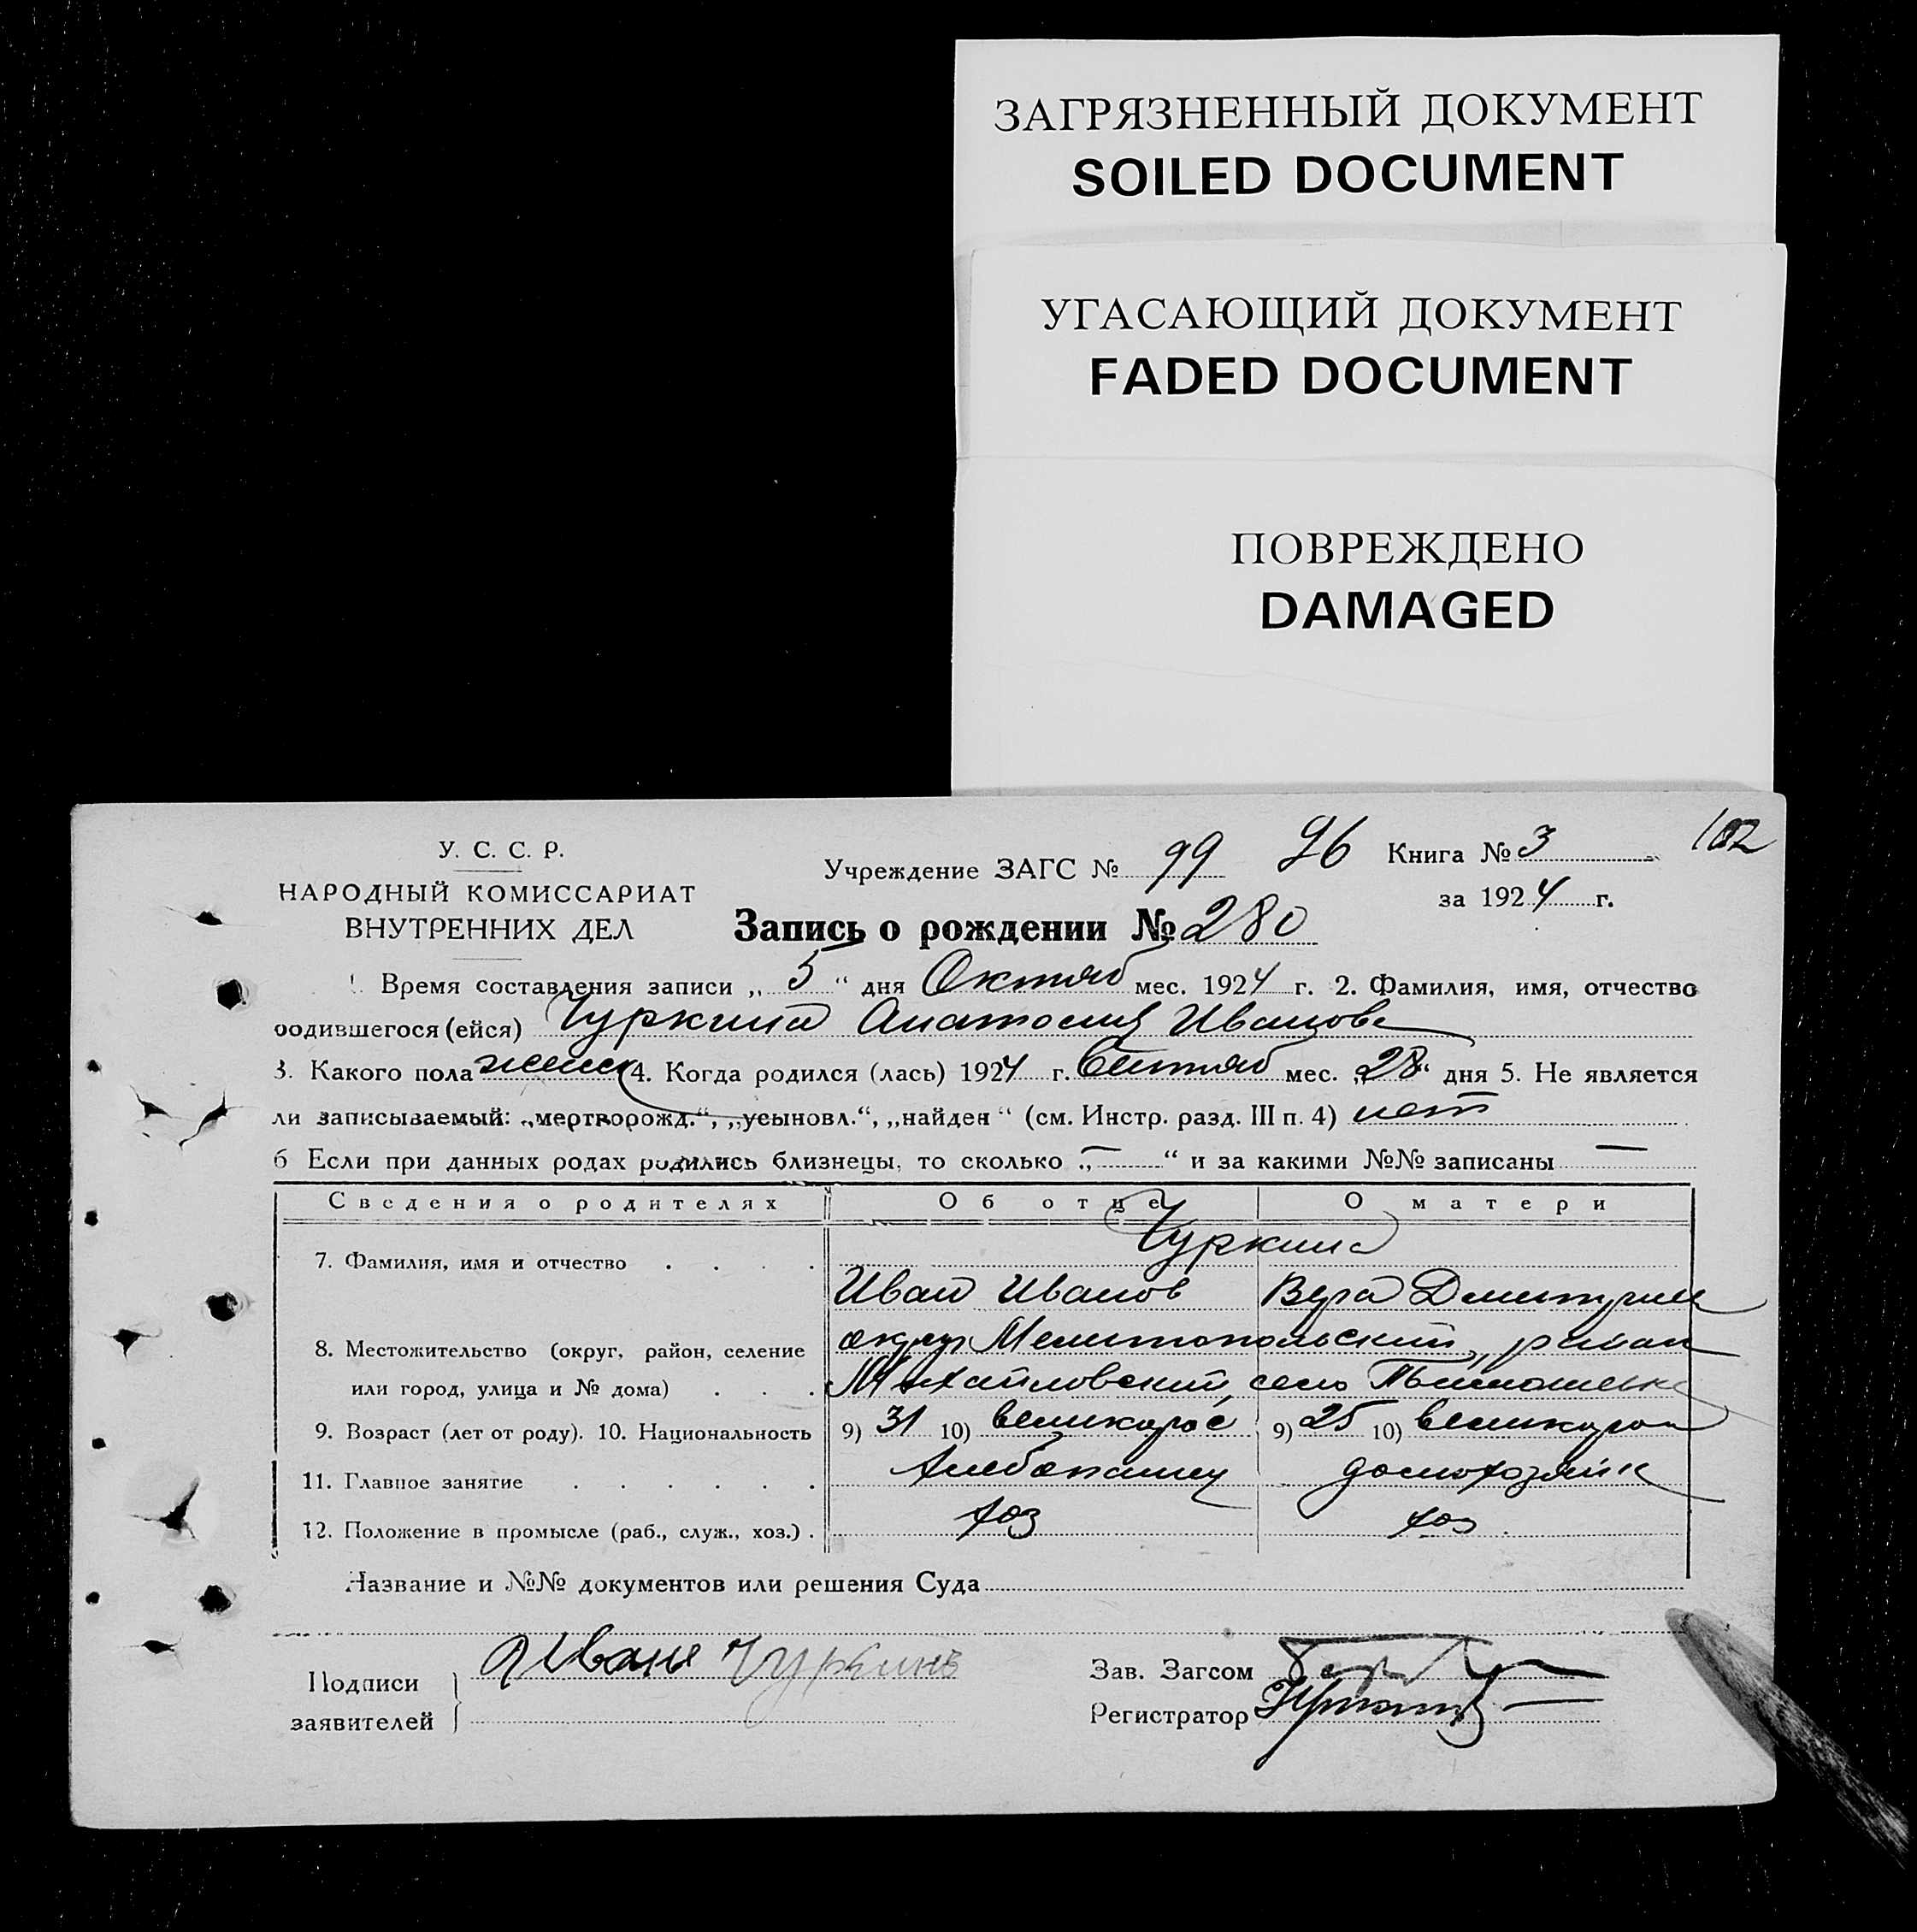 ЗАГРЯЗНЕННЫЙ ДОКУМЕНТ
SOILED DOCUMENT
УГАСАЮЩИЙ ДОКУМЕНТ
FADED DOCUMENT
ПОВРЕЖДЕНО
DAMAGED
102
У. С. С. Р.
НАРОДНЫЙ КОМИССАРИАТ
ВНУТРЕННИХ ДЕЛ
Учреждение ЗАГС № 99 96 Книга № 3
за 1924 г.
Запись о рождении № 280
1. Время составления записи „5“ дня Октяб мес. 1924 г. 2. Фамилия, имя, отчество
родившегося (ейся) Чуркина Иванове
3. Какого пола женск 4. Когда родился (лась) 1924 г. Сентяб мес. „28“ дня 5. Не является
ли записываемый: „мертворожд.“, „усыновл.“, „найден“ (см. Инстр. разд. III п. 4) нет
6 Если при данных родах родились близнецы, то сколько „—“ и за какими №№ записаны —
Сведения о родителях Об отце О матери
7. Фамилия, имя и отчество . . . . Чуркина
Иван Иванов Вера Дмитриев
8. Местожительство (округ, район, селение округ Мелитопольский, район
или город, улица и № дома) . . . Михайловский, село
9. Возраст (лет от роду). 10. Национальность 9) 31 10) великорос 9) 25 10) великорос
11. Главное занятие . . . . . . Хлебопашец домохозяйк
12. Положение в промысле (раб., служ., хоз.) . хоз хоз
Название и №№ документов или решения Суда
Подписи Иванъ Чуркинъ
заявителей
Зав. Загсом
Регистратор